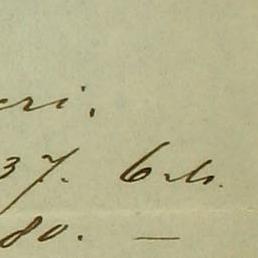 eri.
37. 6 rb.
80. —